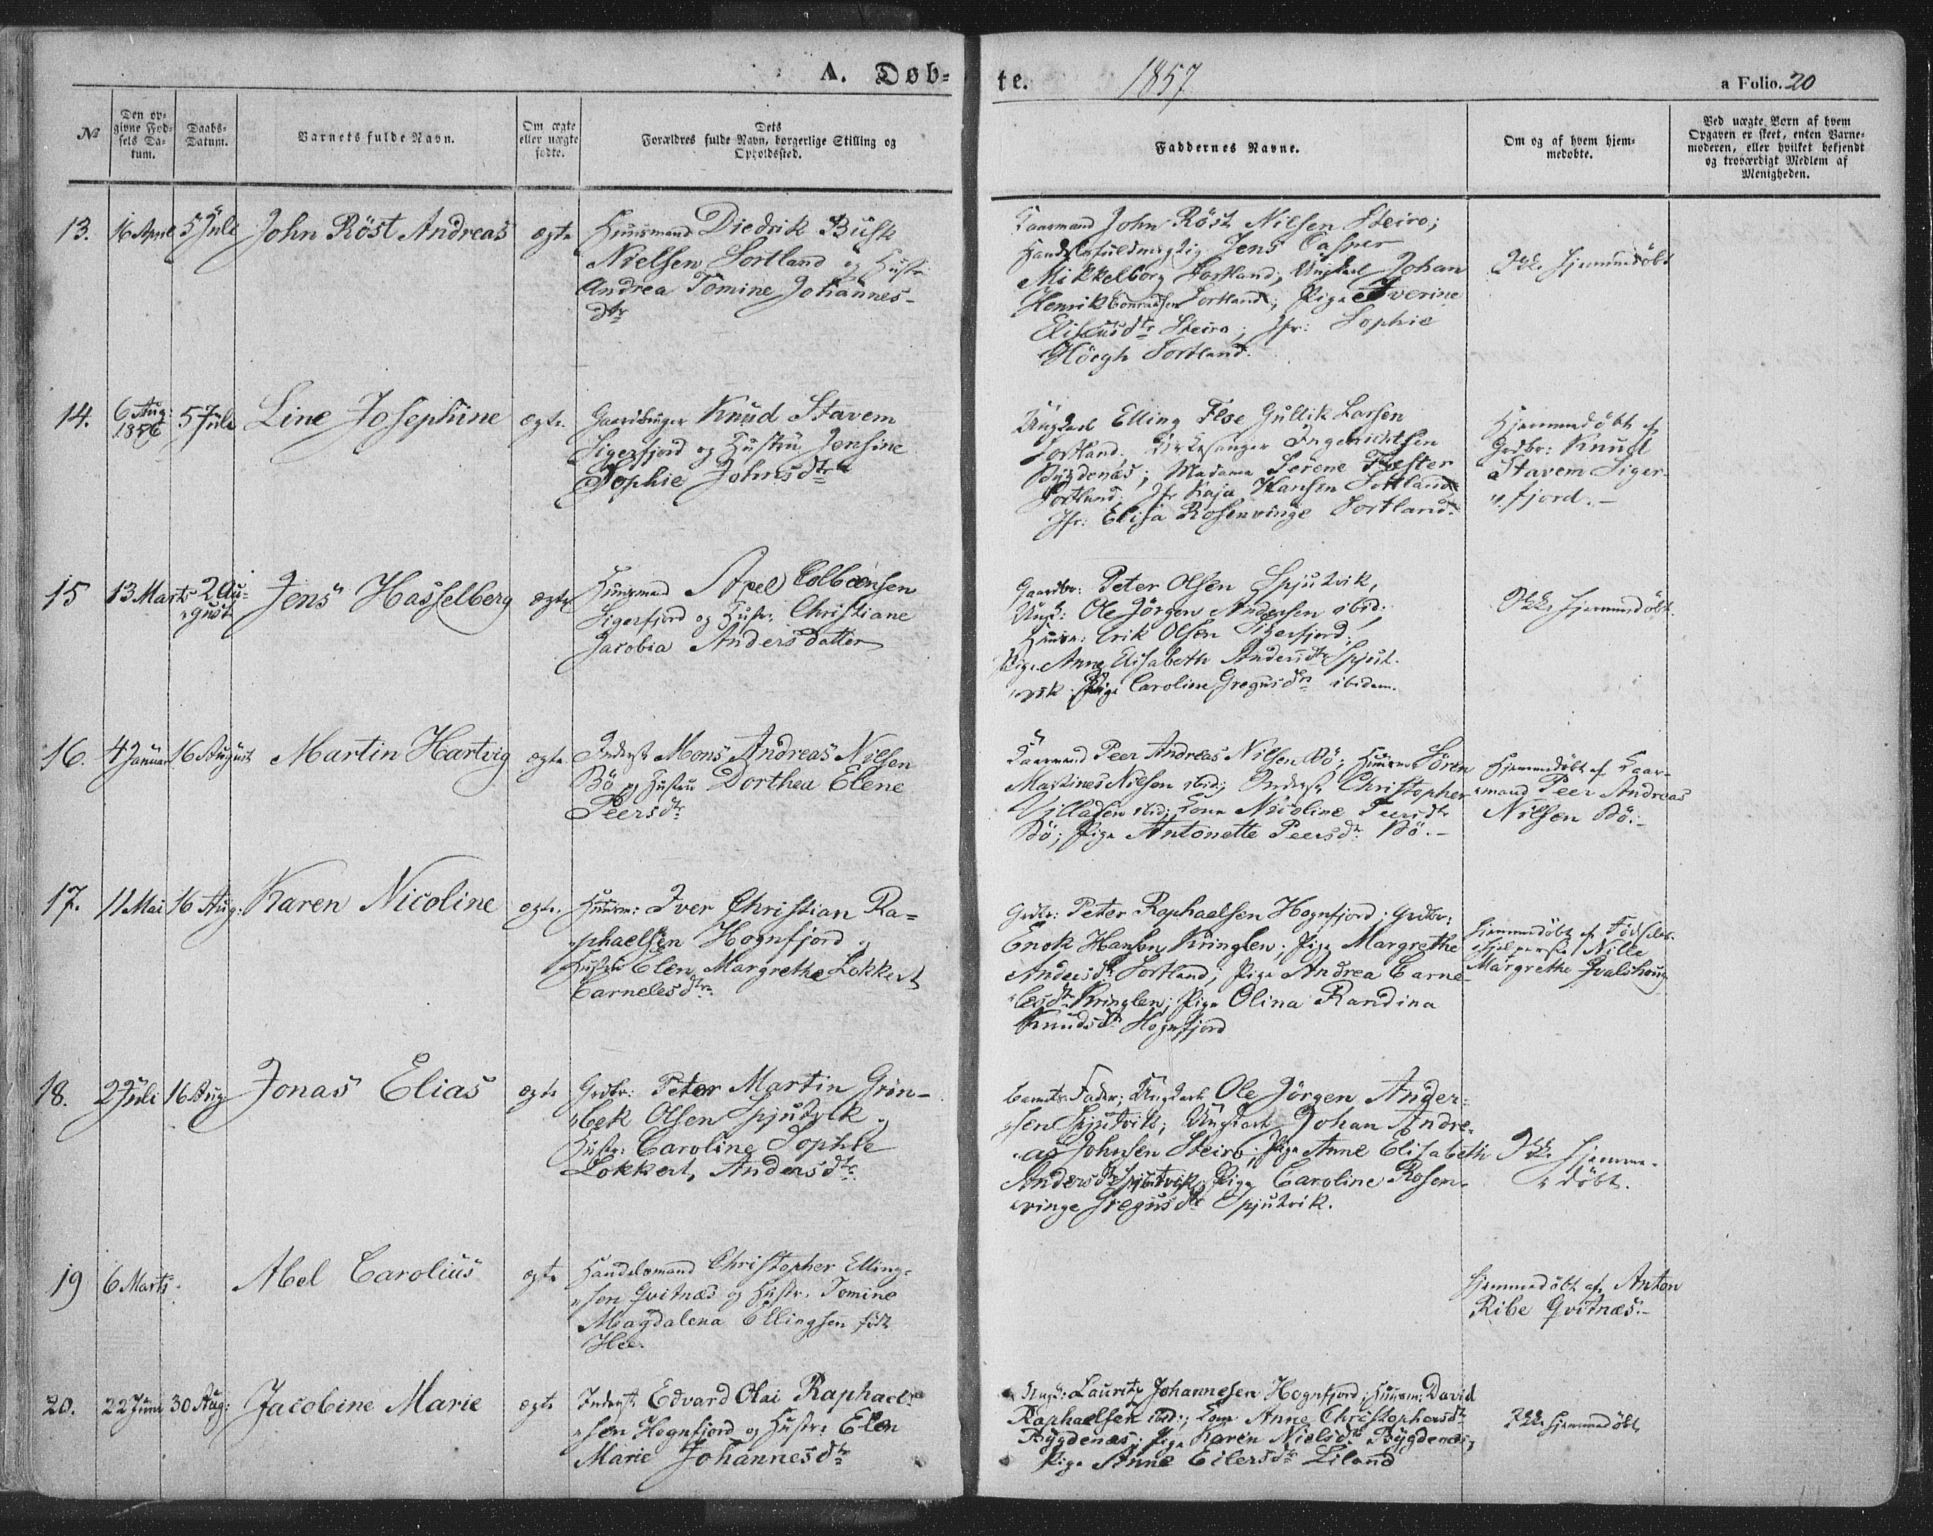 A. Døb-
te. 1857
a Folio. 20
No
Den op-
givne Fød-
sels Da-
tum.
Daabs-
Datum.
Barnets fulde Navn.
Om ægte
eller uægte
fødte.
Dets
Forældres fulde Navn, borgerlige Stilling og
Opholdssted.
Faddernes Navne.
Om og af hvem hjem-
medøbte.
Ved uægte Born af hvem
Opgaven er skeet, enten Barne-
moderen, eller hvilket bekjendt
og troværdigt Medlem af
Menigheden.
13. 16 April 5 Juli John Röst Andreas ægte
Huusmand Diedrik Busk
Nielsen Sortland og Hustr:
Andrea Tomine Johannes-
dtr
Kaarmand John Röst Nilsen Steiro;
Handelsfuldmægtig Jens Casper
Mikkelborg Sortland; Ungkarl Johan
Henrik Conradsen Sortland; Pige Iverine
Eliseusdtr Steiro; Jfr: Sophie
Höegh Sortland.
Ikke hjemmedöbt
14. 6 Aug: 1856 5 Juli Line Josephine ægte.
Gaardbruger Knud Stavem
Sigerfjord og Hustru Jensine
Sophie Johnsdtr
Ungkarl Elling Floe Gullik Larsen
Sortland. Kirkesanger Ingebrichtsen
Bygdenæs; Madame Serene Fester
Sortland; Jfr Kaja Hansen Sortland
Jfr: Elisa Rosenvinge Sortland.
Hjemmedöbt af
Grdbr: Knud
Stavem Siger-
fjord.-
15 13 Marts 2 Au-
gust Jens Hasselberg ægte
Huusmand Axel Colbensen
Sigerfjord og Hustr: Christiane
Jacobia Andersdatter
Gaardbr: Peter Olsen Spjutvik,
Ungk: Ole Jörgen Andersen ibid;
Huusm: Erik Olsen Sigerfjord;
Pige Anne Elisabeth Andersdtr Spjut-
vik Pige Caroline Gregusdtr ibidem.
Ikke hjemmedöbt.
16. 4 Januar 16 August Martin Hartvig ægte
Inderst Mons Andreas Nilsen
Bö og Hustru Dorthea Elene
Peersdtr
Kaarmand Peer Andreas Nilsen Bö; Huusm: Sören
Martines Nilsen ibid; Inderst Christopher
Villadsen ibid; Kone Nicoline Peersdtr
Bö; Pige Antonette Peersdtr Bö.-
Hjemmedöbt af Kaar-
mand Peer Andreas
Nilsen Bö.-
17. 11 Mai 16 Aug: Karen Nicoline ægte.
Huusm: Iver Christian Ra-
phaelsen Hognfjord og
Hustr: Elen Margrethe Lokkert
Carnelesdtr
Grdbr: Peter Raphaelsen Hognfjord; Grdbr:
Enok Hansen Kringlen; Pige Margrethe
Andersdtr Sortland; Pige Andrea Carne-
lesdtr Kringlen; Pige Olina Randina
Knudsdtr Hognfjord
Hjemmedöbt af Födsels-
hjelperske Nille
Margrethe Qvalshoug
18. 2 Juli 16 Aug Jonas Elias ægte
Grdbr: Peter Martin Grön-
bek Olsen Spjutvik og
Hustr: Caroline Sophie
Lokkert, Andersdtr
Barnets Fader; Ungkarl Ole Jörgen Ander-
sen Spjutvik; Ungkarl Johan Andre-
as Johnsen Steiro; Pige Anne Elisabeth
Andersdtr Spjutvik; Pige Caroline Rosen-
vinge Gregusdtr Spjutvik.
Ikke hjemme-
döbt.
19 6 Marts. Abel Carolius ægte
Handelsmand Christopher Elling-
sen Qvitnæs og Hustr. Tomine
Magdalena Ellingsen födt
Hee.
Hjemmedöbt af Anton
Ribe Qvitnæs.-
20. 22 Juni 30 Aug: Jacobine Marie ægte
Inderst Edvard Olai Raphael-
sen Hognfjord og Hustr: Elen
Marie Johannesdtr
Ungk: Lauritz Johannesen Hognfjord; Huusm: David
Raphaelsen ibid:; Kone Anne Christophersdtr
Bygdenæs; Pige Karen Nielsdtr Bygdenæs;
Pige Anne Eilersdtr Liland
Ikke hjemmedöbt